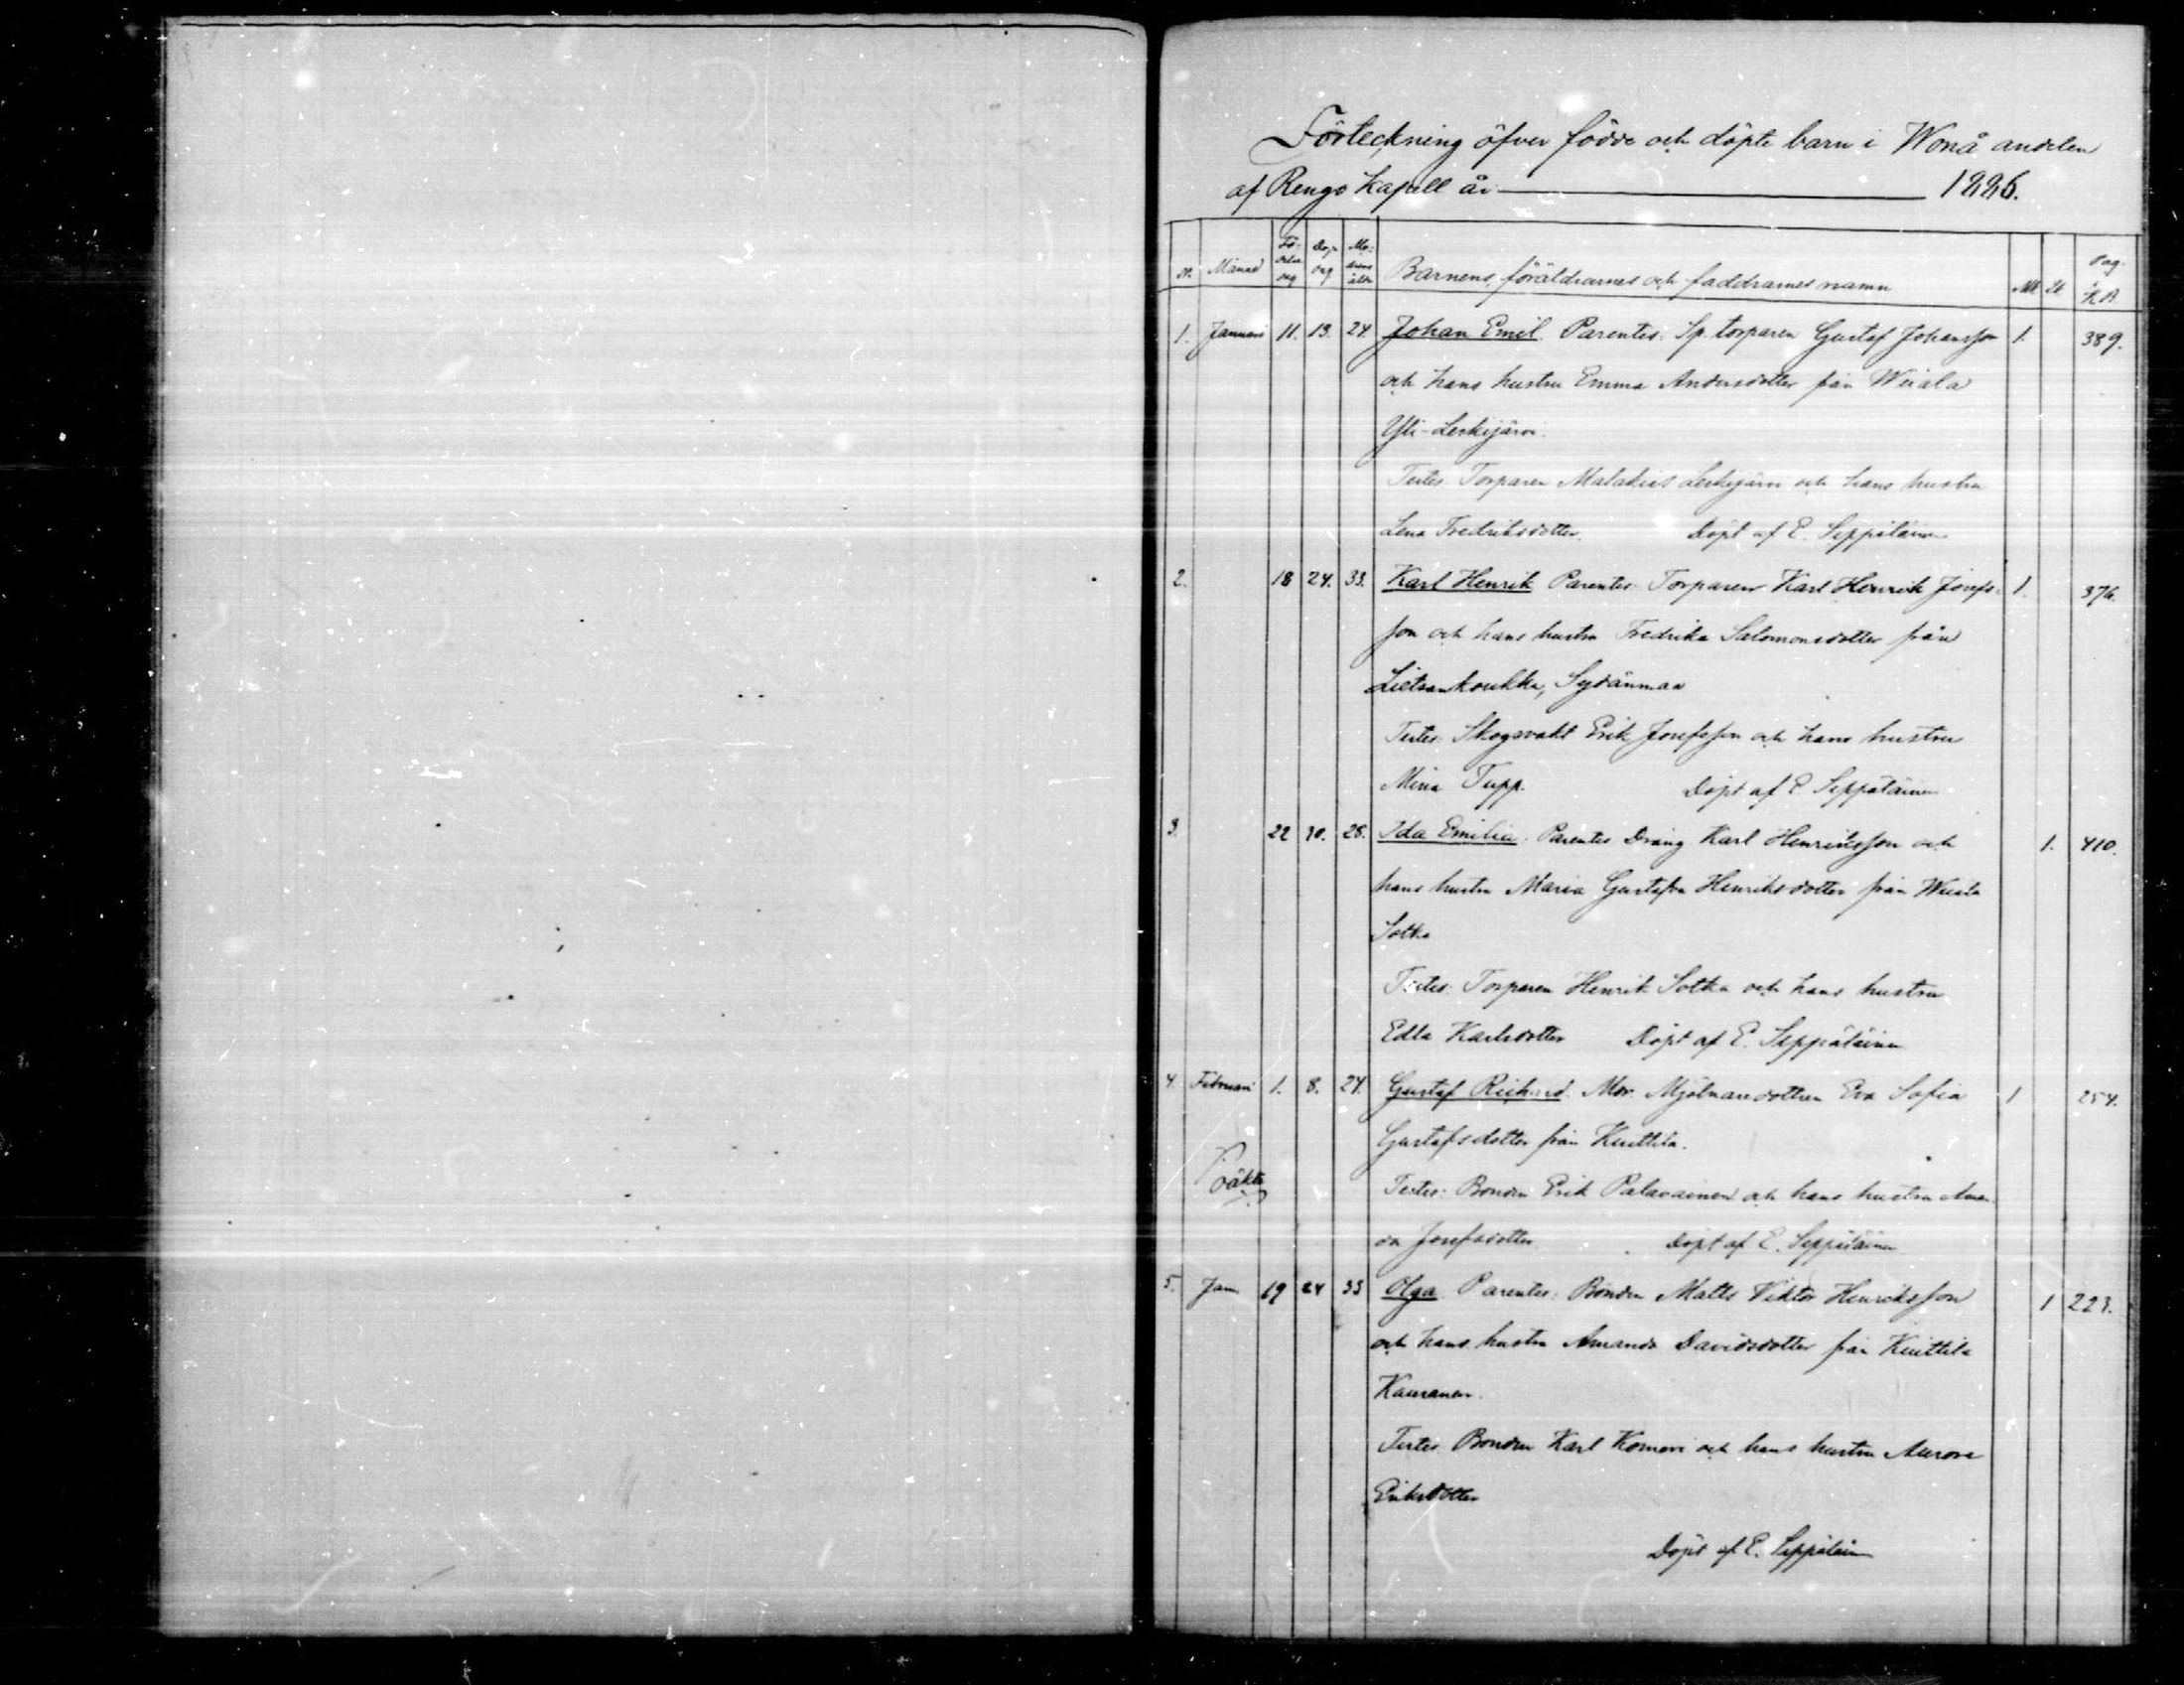 Förteckning öfver födde och döpte barn i Wonå andelen
af Rengo Kapell år 1886.
N. Månad Fö-delse dag Dop dag Mo-drens ålder Barnens, föräldrarnes och faddrarnes namn Mk Qk Pag. i K.B.
1. Januari 11. 13. 24 Johan Emil. Parentes: Sp. torparen Gustaf Johansson 1. 389.
och hans hustru Emma Andersdotter från Weiala
Yli-Leskijärvi.
Testes Torparen Malakias Leskijärvi och hans hustru
Lena Fredriksdotter. Döpt af E. Seppäläinen
2. 18 24. 33. Karl Henrik Parentes: Torparen Karl Henrik Josefs- 1. 376.
son och hans hustru Fredrika Salomonsdotter från
Lietsankoukku, Sydänmaa
Testes: Skogsvakt Erik Josefsson och hans hustru
Mina Tupp. Döpt af E Seppäläinen
3. 22 30. 28. Ida Emilia. Parentes Dräng Karl Henriksson och 1. 410.
hans hustru Maria Gustafva Henriksdotter från Weiala
Sotka
Testes: Torparen Henrik Sotka och hans hustru
Edla Karlsdotter Döpt af E. Seppäläinen
4. Februari 1. 8. 24. Gustaf Richard. Mor. Mjölnaredottren Eva Sofia 1 254.
Gustafsdotter från Kuittila.
oäkta
Testes: Bonden Erik Palavainen och hans hustru Aman-
da Josefsdotter Döpt af E. Seppäläinen
5. Jan 19 24 33 Olga Parentes: Bonden Matts Viktor Henriksson 1 223.
och hans hustru Amanda Davidsdotter från Kuittila
Kauranen.
Testes Bonden Karl Komeri och hans hustru Aurora
Eriksdotter
Döpt af E. Seppäläin